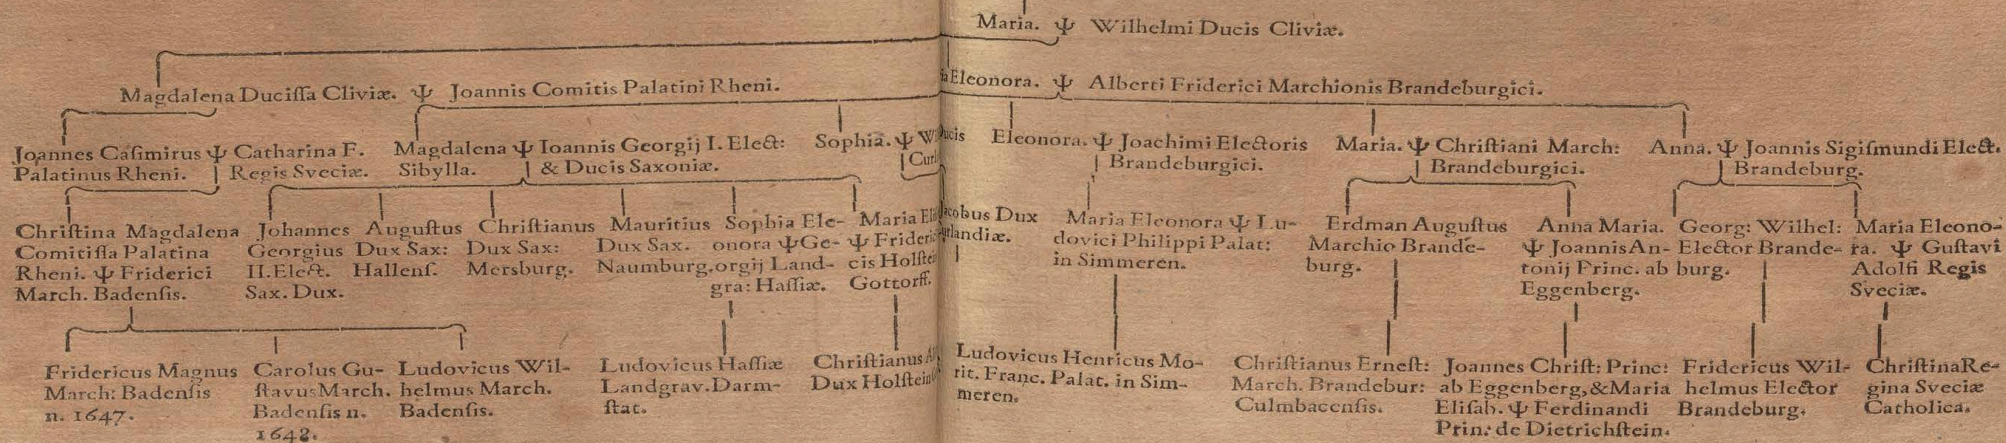 Maria. Ψ Wilhelmi Ducis Cliviæ.
Magdalena Duciſſa Cliviæ. Ψ Joannis Comitis Palatini Rheni.
Eleonora. Ψ Alberti Friderici Marchionis Brandeburgici.
Joannes Caſimirus Ψ Catharina F.
Palatinus Rheni. Regis Sveciæ.
Magdalena Ψ Ioannis Georgij I. Elect:
Sibylla. & Ducis Saxoniæ.
Sophia. Ψ
Eleonora. Ψ Joachimi Electoris
Brandeburgici.
Maria. Ψ Chriſtiani March:
Brandeburgici.
Anna. Ψ Joannis Sigiſmundi Elect.
Brandeburg.
Chriſtina Magdalena
Comitiſſa Palatina
Rheni. Ψ Friderici
March. Badenſis.
Johannes
Georgius
II. Elect.
Sax. Dux.
Auguſtus
Dux Sax:
Hallenſ.
Chriſtianus
Dux Sax:
Mersburg.
Mauritius
Dux Sax.
Naumburg.
Sophia Ele-
onora Ψ Ge-
orgij Land-
gra: Haſſiæ.
Maria
Ψ
cis
Gottorff.
Dux
Maria Eleonora Ψ Lu-
dovici Philippi Palat:
in Simmeren.
Erdman Auguſtus
Marchio Brande-
burg.
Anna Maria.
Ψ Joannis An-
tonij Princ. ab
Eggenberg.
Georg: Wilhel:
Elector Brande-
burg.
Maria Eleono-
ra. Ψ Guſtavi
Adolfi Regis
Sveciæ.
Fridericus Magnus
March: Badenſis
n. 1647.
Carolus Gu-
ſtavus March.
Badenſis n.
1648.
Ludovicus Wil-
helmus March.
Badenſis.
Ludovicus Haſſiæ
Landgrav. Darm-
ſtat.
Chriſtianus
Dux
Ludovicus Henricus Mo-
rit. Franc. Palat. in Sim-
meren.
Chriſtianus Erneſt:
March. Brandebur:
Culmbacenſis.
Joannes Chriſt: Princ:
ab Eggenberg, & Maria
Eliſab. Ψ Ferdinandi
Prin: de Dietrichſtein.
Fridericus Wil-
helmus Elector
Brandeburg.
Chriſtina Re-
gina Sveciæ
Catholica.